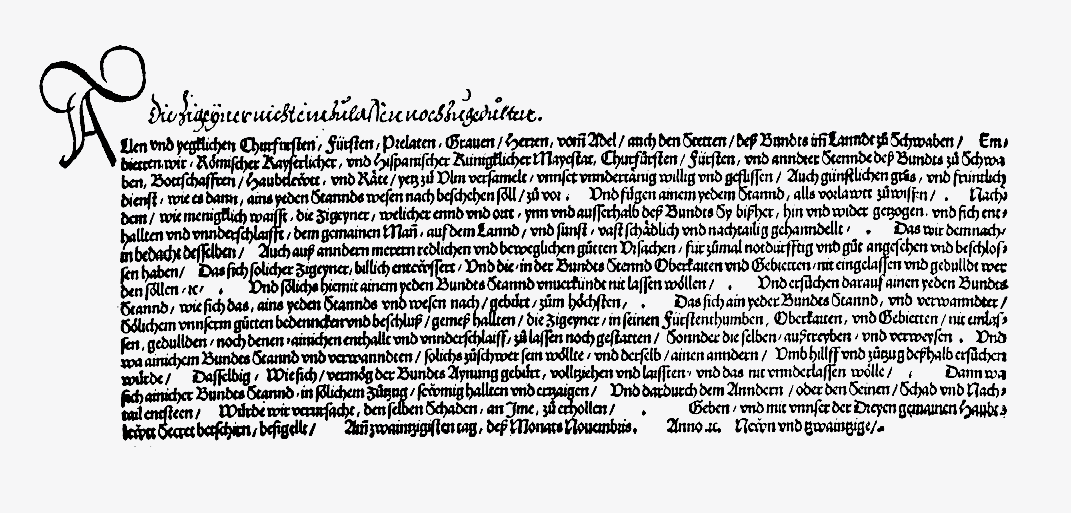 Die Zigeyner nicht einzulassen noch zu gedulten.
Allen vnd yegklichen Churfürsten, Fürsten, Prelaten, Grauen / Herren, vom̄ Adel / auch den Stetten / deß Bundts im̄ Lannde zů Schwaben / Em⸗
bietten wir, Römischer Kayserlicher, vnd Hispanischer Künigklicher Mayestat, Churfürsten / Fürsten, vnd annderer Stennde deß Bundts zů Schwa
ben, Bottschafften / Haubtlewtt, vnd Räte / yetz zů Vlm versamelt / vnnser vnndertänig willig vnd geflissen / Auch günstlichen grůs, vnd früntlich
dienst, wie es dann, ains yeden Stannds wesen nach beschehen söll / zů vor. Vnd fügen ainem yedem Stannd, alls vorlawtt zů wissen / . Nach⸗
dem / wie menigklich waisst, die Zigeyner, welicher ennd vnd ortt, ynn vnd ausserhalb deß Bundts Sy bißher, hin vnd wider getzogen, vnd sich ent⸗
hallten vnd vnnderschlaifft, dem gemainen Man̄, auf dem Lannd, vnd sünst, vast schädlich vnd nachtailig gehanndellt, . Das wir demnach,
in bedacht desselben, Auch auß anndern merern redlichen vnd beweglichen gůtten Vrsachen, für zůmal notdürfftig vnd gůt angesehen vnd beschlos⸗
sen haben / Das sich solicher Zigeyner, billich enteüssert, Vnd die, in der Bundts Stennd Oberkaiten vnd Gebietten, nit eingelassen vnd gedulldt wer
den söllen, ꝛc, . Vnd sölichs hiemit ainem yeden Bundts Stannd vnuerkündt nit lassen wöllen / . Vnd ersůchen darauf ainen yeden Bundts
Stannd, wie sich das, ains yeden Stannds vnd wesen nach / gebürt, zům höchsten, . Das sich ain yeder Bundts Stannd, vnd verwanndter /
Sölichem vnnserm gůtten bedenncken vnd beschluß / gemeß hallten / die Zigeyner, in seinen Fürstenthumben, Oberkaiten, vnd Gebietten / nit einlas⸗
sen, gedullden, noch denen, ainichen enthallt vnd vnnderschlaiff, zů lassen noch gestatten / Sonnder die selben, außtreyben, vnd verweysen. Vnd
wa ainichem Bundts Stannd vnd verwanndten / solichs zůschwer sein wöllte, vnd derselb / ainen anndern / Vmb hilff vnd zůzug deßhalb ersůchen
wurde / Dasselbig, Wie sich / vermög der Bundts Aynung gebürt, volltziehen vnd laissten, vnd das nit vnnderlassen wölle / , Dann wa
sich ainicher Bundts Stannd, in sölichem Zůtzug / sewmig hallten vnd ertzaigen / Vnd dardurch dem Anndern / oder den Seinen / Schad vnd Nach⸗
tail entsteen / Würde wir verursacht, den selben Schaden, an Jme, zů erhollen / . Geben / vnd mit vnnser der Dreyen gemainen Haubt⸗
lewtt Secret betschiren, besigellt / Am̄ zwaintzigisten tag, deß Monats Nouembris. Anno ꝛc. Newn vnd tzwaintzige /.